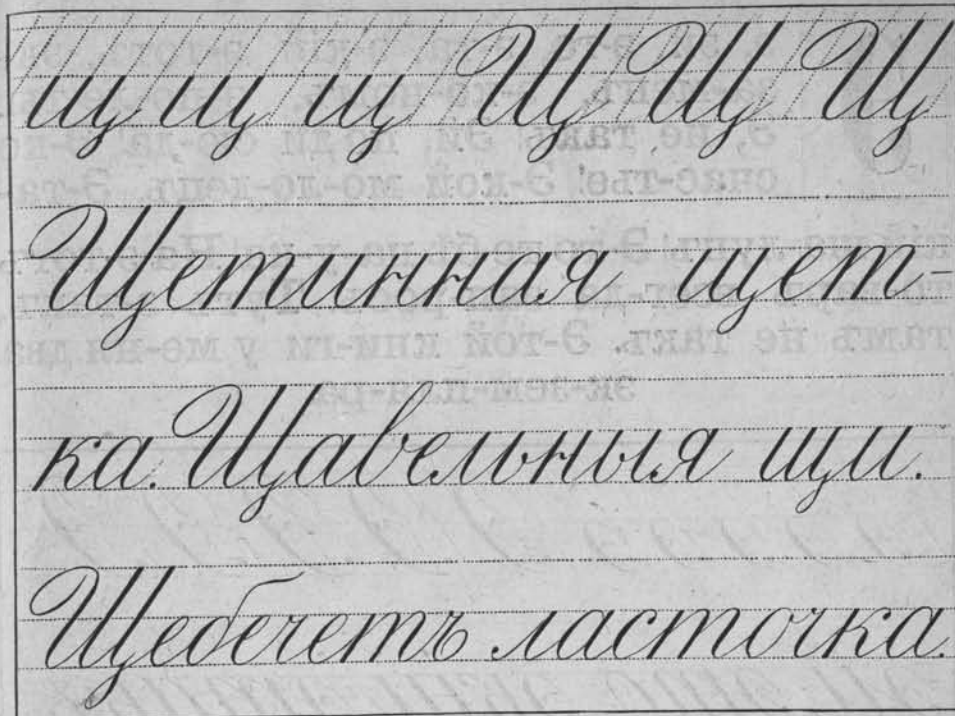 щ щ щ Щ Щ Щ
Щетинная щет-
ка. Щавельныя щи.
Щебечетъ ласточка.